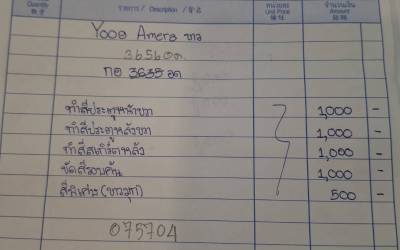 Quantity รายการ / Description / 項目 หน่วยละ Unit Price จำนวนเงิน Amount
Yoos Amera ขาว
3656
กอ 3635 อด
ทำสีประตูหน้าขวา 1,000 -
ทำสีประตูหลังขวา 1,000 -
ทำสีสเกิร์ตหลัง 1,000 -
ขัดสีรอบคัน 1,000 -
สีพิเศษ (ขาวมุก) 500 -
075704